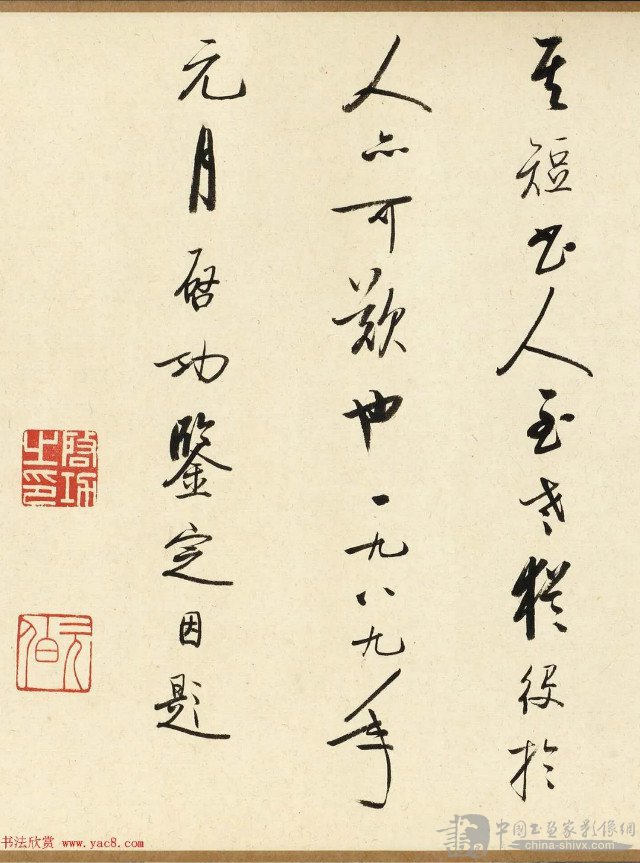 其短也人至老猶役於
人亦可歎也一九八九年
元月啓功鑒定因題
啓功之印
元伯
书法欣赏 www.yac8.com
中国书画家影像网
china-shivx.com